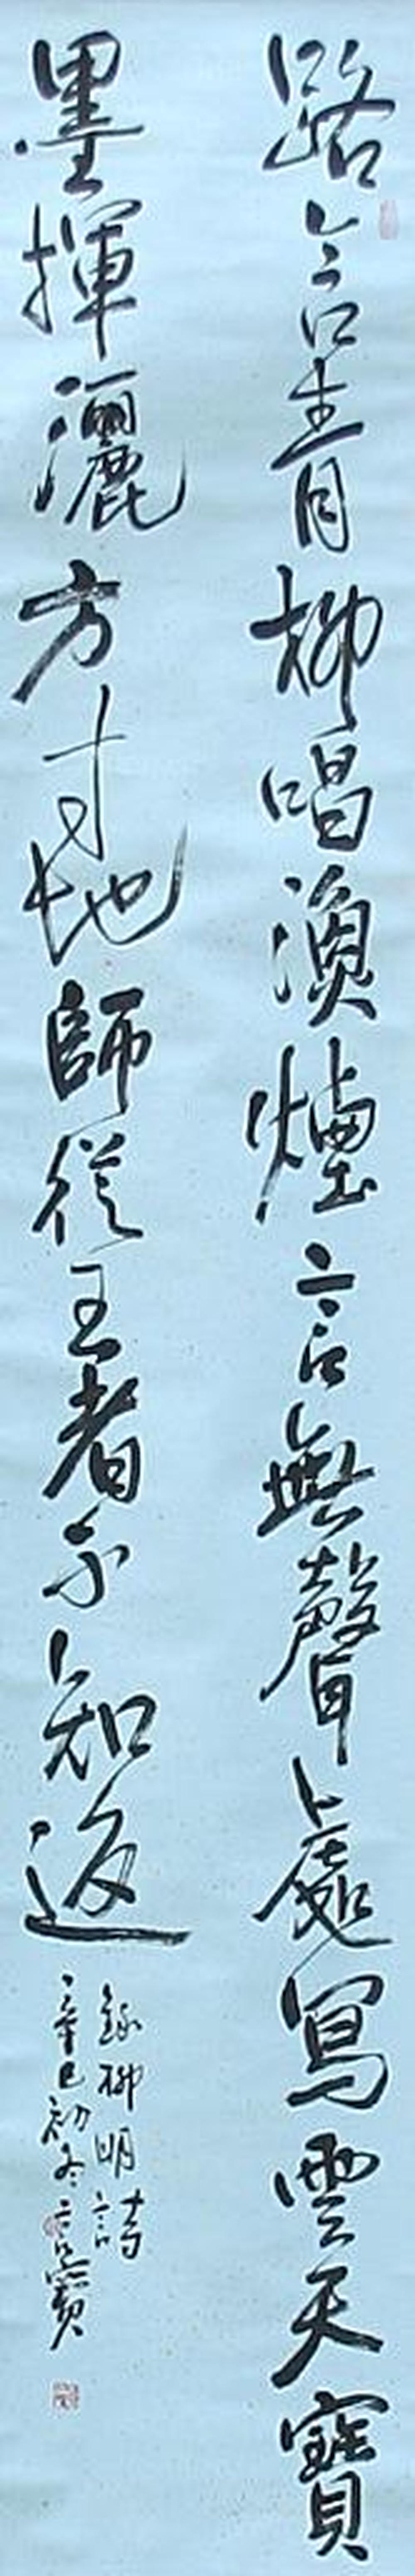 路含青柳唱漁煙言無聲處寫雲天寶
墨揮灑方寸地師從王者不知返
錄柳明詩
辛巳初冬言寶